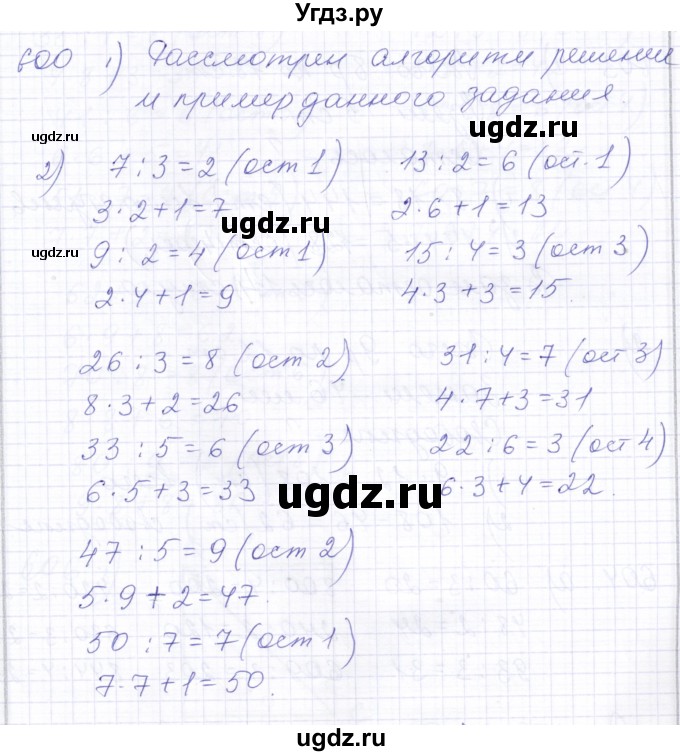 Угдз.ру
600 1) Рассмотрен алгоритм решения
и пример данного задания.
ugdz.ru ugdz.ru
2) 7 : 3 = 2 (ост 1) 13 : 2 = 6 (ост. 1)
3 · 2 + 1 = 7 2 · 6 + 1 = 13
ugdz.ru
ugdz.ru 9 : 2 = 4 (ост 1) 15 : 4 = 3 (ост 3)
2 · 4 + 1 = 9 4 · 3 + 3 = 15.
26 : 3 = 8 (ост 2) 31 : 4 = 7 (ост 3)
8 · 3 + 2 = 26 4 · 7 + 3 = 31
33 : 5 = 6 (ост 3) 22 : 6 = 3 (ост 4)
6 · 5 + 3 = 33 6 · 3 + 4 = 22.
ugdz.ru
47 : 5 = 9 (ост 2)
5 · 9 + 2 = 47.
50 : 7 = 7 (ост 1)
7 · 7 + 1 = 50.
ugdz.ru